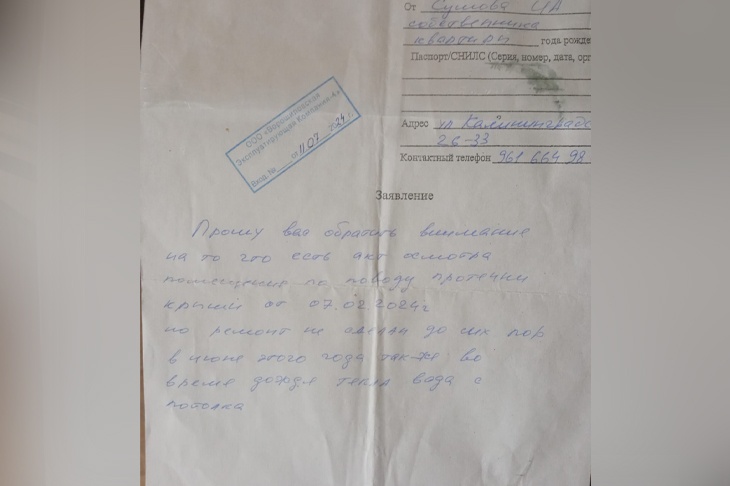 От Сумова
собственника
квартиры года рожде
Паспорт/СНИЛС (Серия, номер, дата, орг
Адрес ул Калининграда
26-33
Контактный телефон 961 664 98
ООО «Ворошиловская
Эксплуатирующая Компания-4»
Вход. № от 11.07 2024 г.
Заявление
Прошу вас обратить внимание
на то что есть акт осмотра
помещения по поводу протечки
крыши от 07.02.2024г
но ремонт не сделан до сих пор
в июне этого года так-же во
время дождя текла вода с
потолка